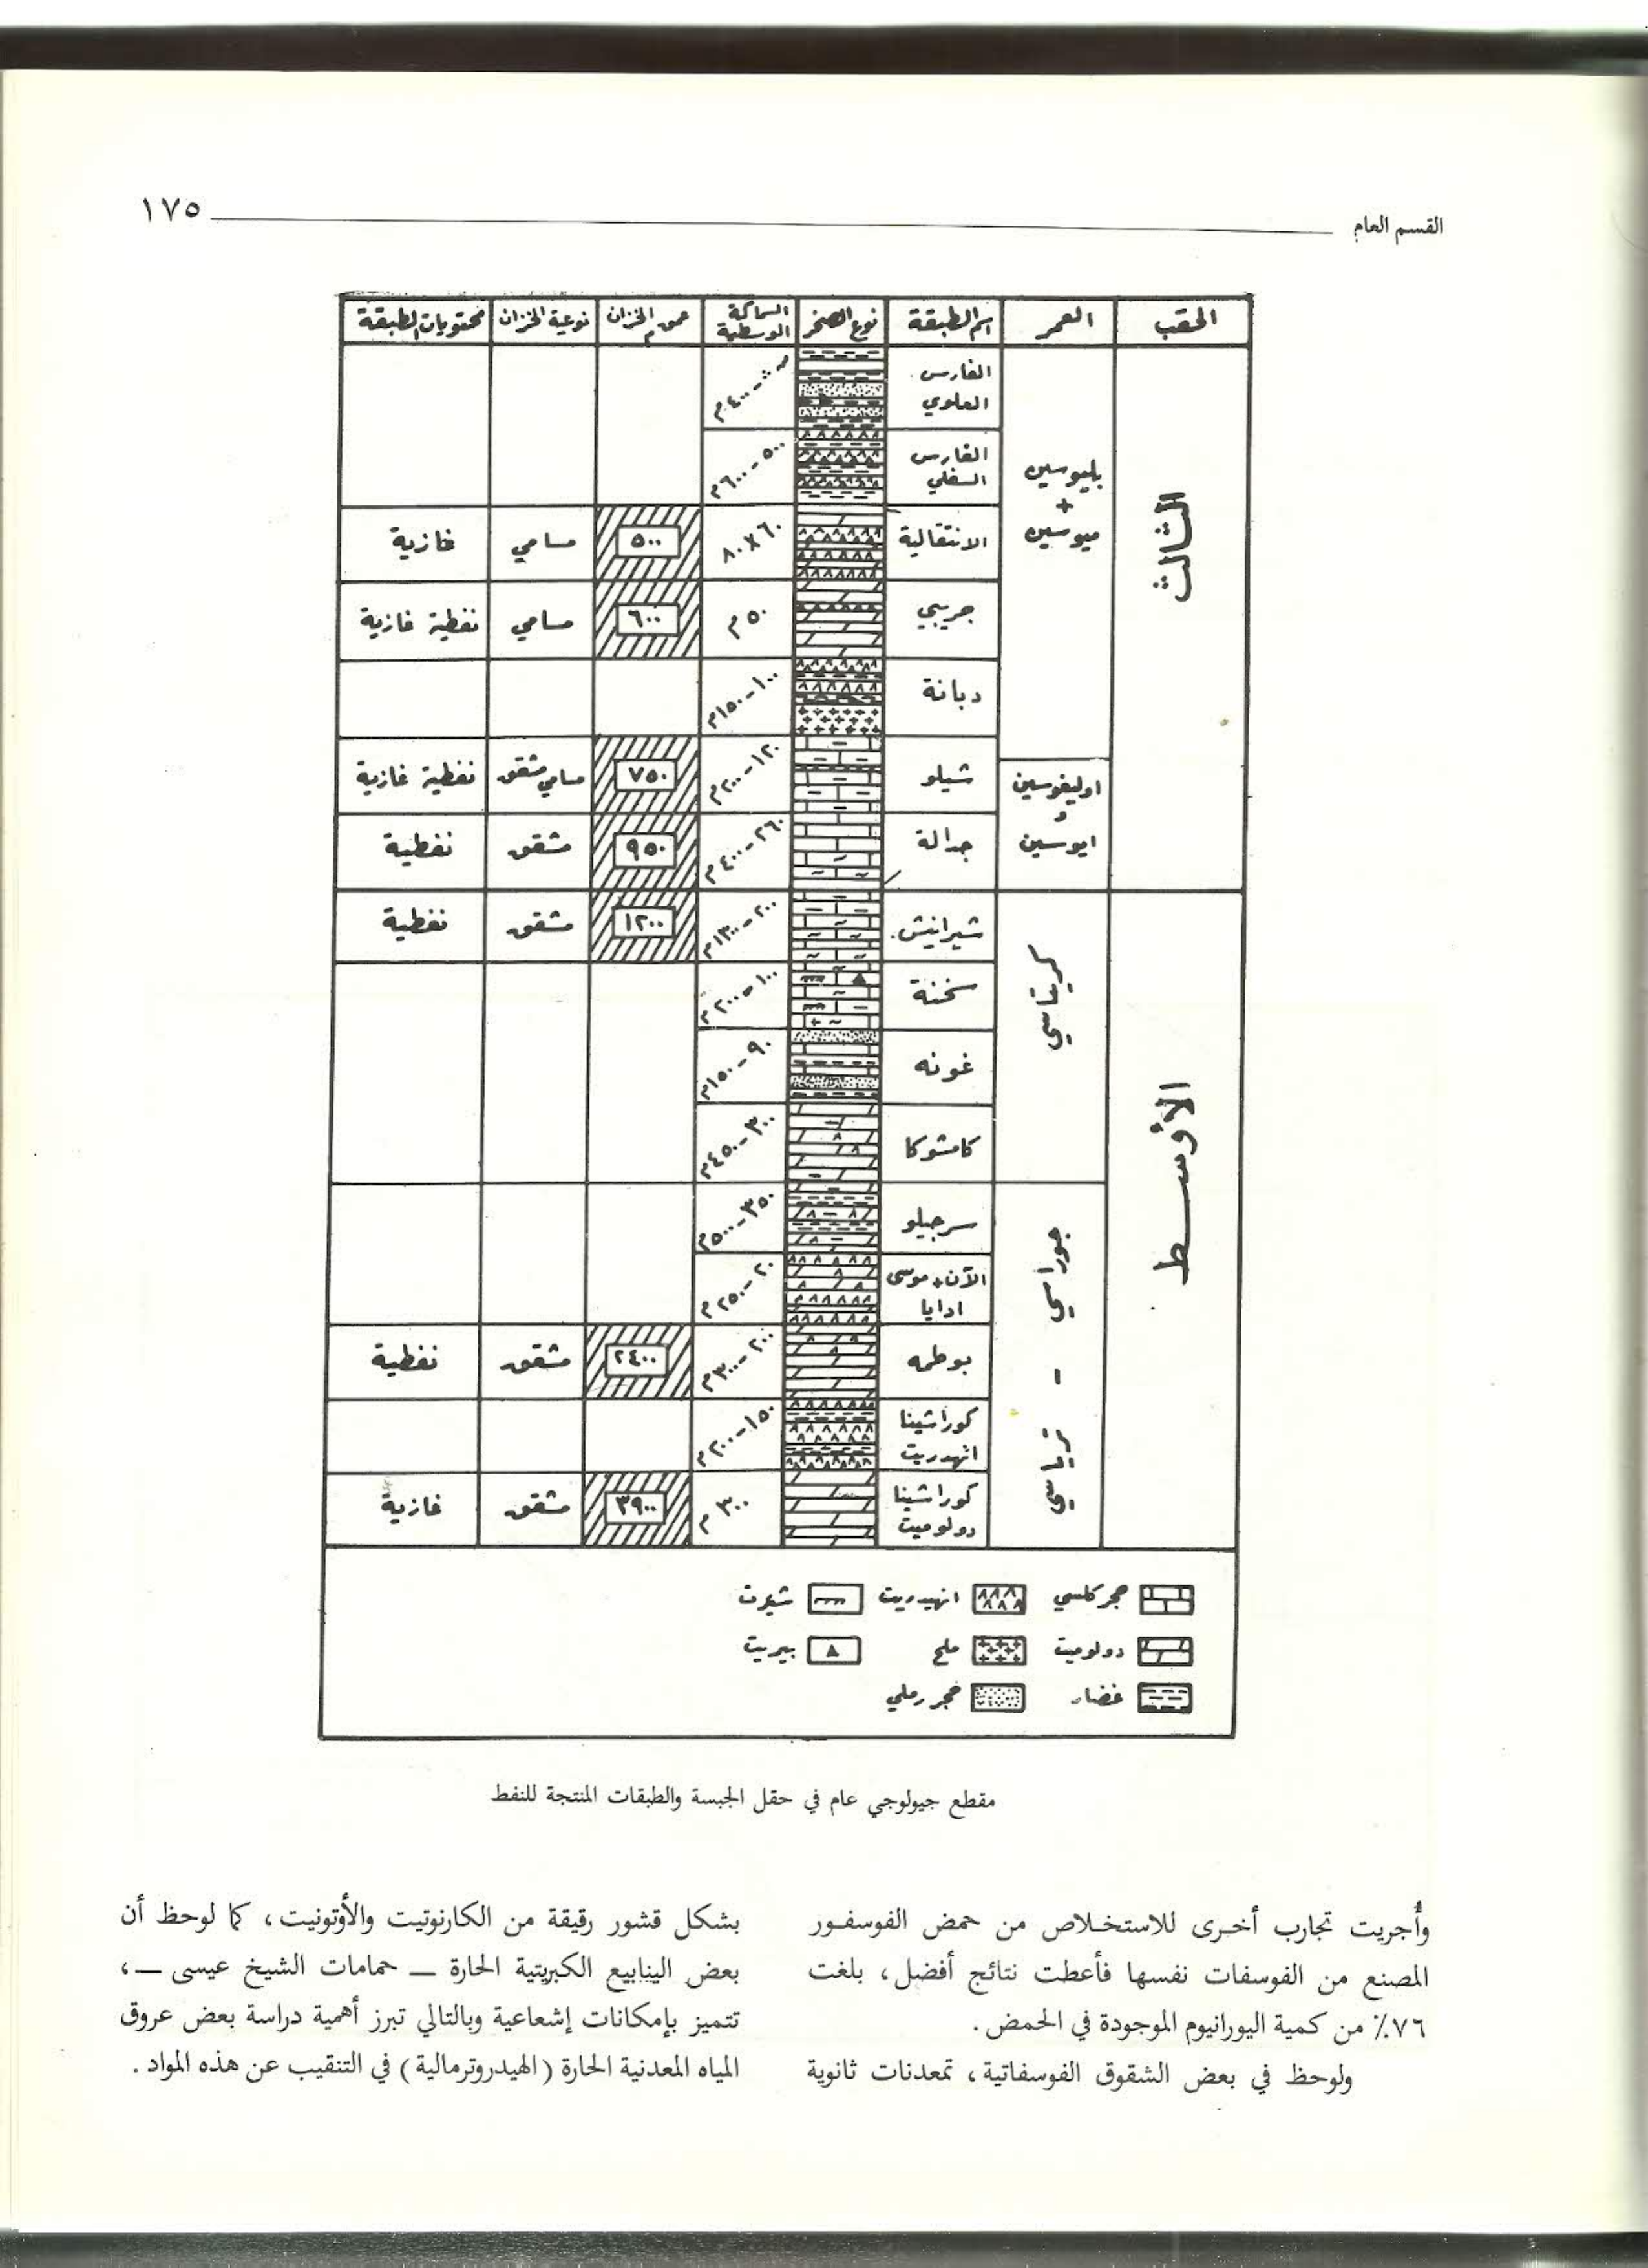 القسم العام ١٧٥
الحقب العمر اسم الطبقة نوع الصخر السماكة الوسطية عمق الخزان م نوعية الخزان محتويات الطبقة
الثالث
بليوسين + ميوسين
الفارس العلوي ٤٠٠م
الفارس السفلي ٥٠٠-٦٠٠م
الانتقالية ٦٠×٨٠ ٥٠٠ مسامي غازية
جريبي ٥٠م ٦٠٠ مسامي نفطية غازية
دبانة ١٠٠-١٥٠م
اوليغوسين و ايوسين
شيلو ١٢٠-٢٠٠م ٧٥٠ مسامي مشقق نفطية غازية
جدالة ٢٦٠-٤٠٠م ٩٥٠ مشقق نفطية
الأوسط
كريتاسي
شيرانيش ٢٠٠-١٣٠٠م ١٢٠٠ مشقق نفطية
سخنة ١٠٠-٢٠٠م
غونه ٩٠-١٥٠م
كامشوكا ٣٠٠-٤٥٠م
جوراسي - ترياسي
سرجيلو ٣٥٠-٥٠٠م
الآن + موسى ادايا ٢٠-٢٥٠م
بوطمه ٢٠٠-٣٠٠م ٢٤٠٠ مشقق نفطية
كوراشينا انهدريت ١٥٠-٢٠٠م
كوراشينا دولوميت ٣٠٠م ٣٩٠٠ مشقق غازية
حجر كلسي انهيدريت شيرت
دولوميت ملح بيريت
غضار حجر رملي
مقطع جيولوجي عام في حقل الجبسة والطبقات المنتجة للنفط
وأُجريت تجارب أخـرى للاستخـلاص من حمض الفوسفـور
المصنع من الفوسفات نفسها فأعطت نتائج أفضل، بلغت
٧٦٪ من كمية اليورانيوم الموجودة في الحمض.
ولوحظ في بعض الشقوق الفوسفاتية، تمعدنات ثانوية
بشكل قشور رقيقة من الكارنوتيت والأوتونيت، كما لوحظ أن
بعض الينابيع الكبريتية الحارة — حمامات الشيخ عيسى —،
تتميز بإمكانات إشعاعية وبالتالي تبرز أهمية دراسة بعض عروق
المياه المعدنية الحارة (الهيدروترمالية) في التنقيب عن هذه المواد.